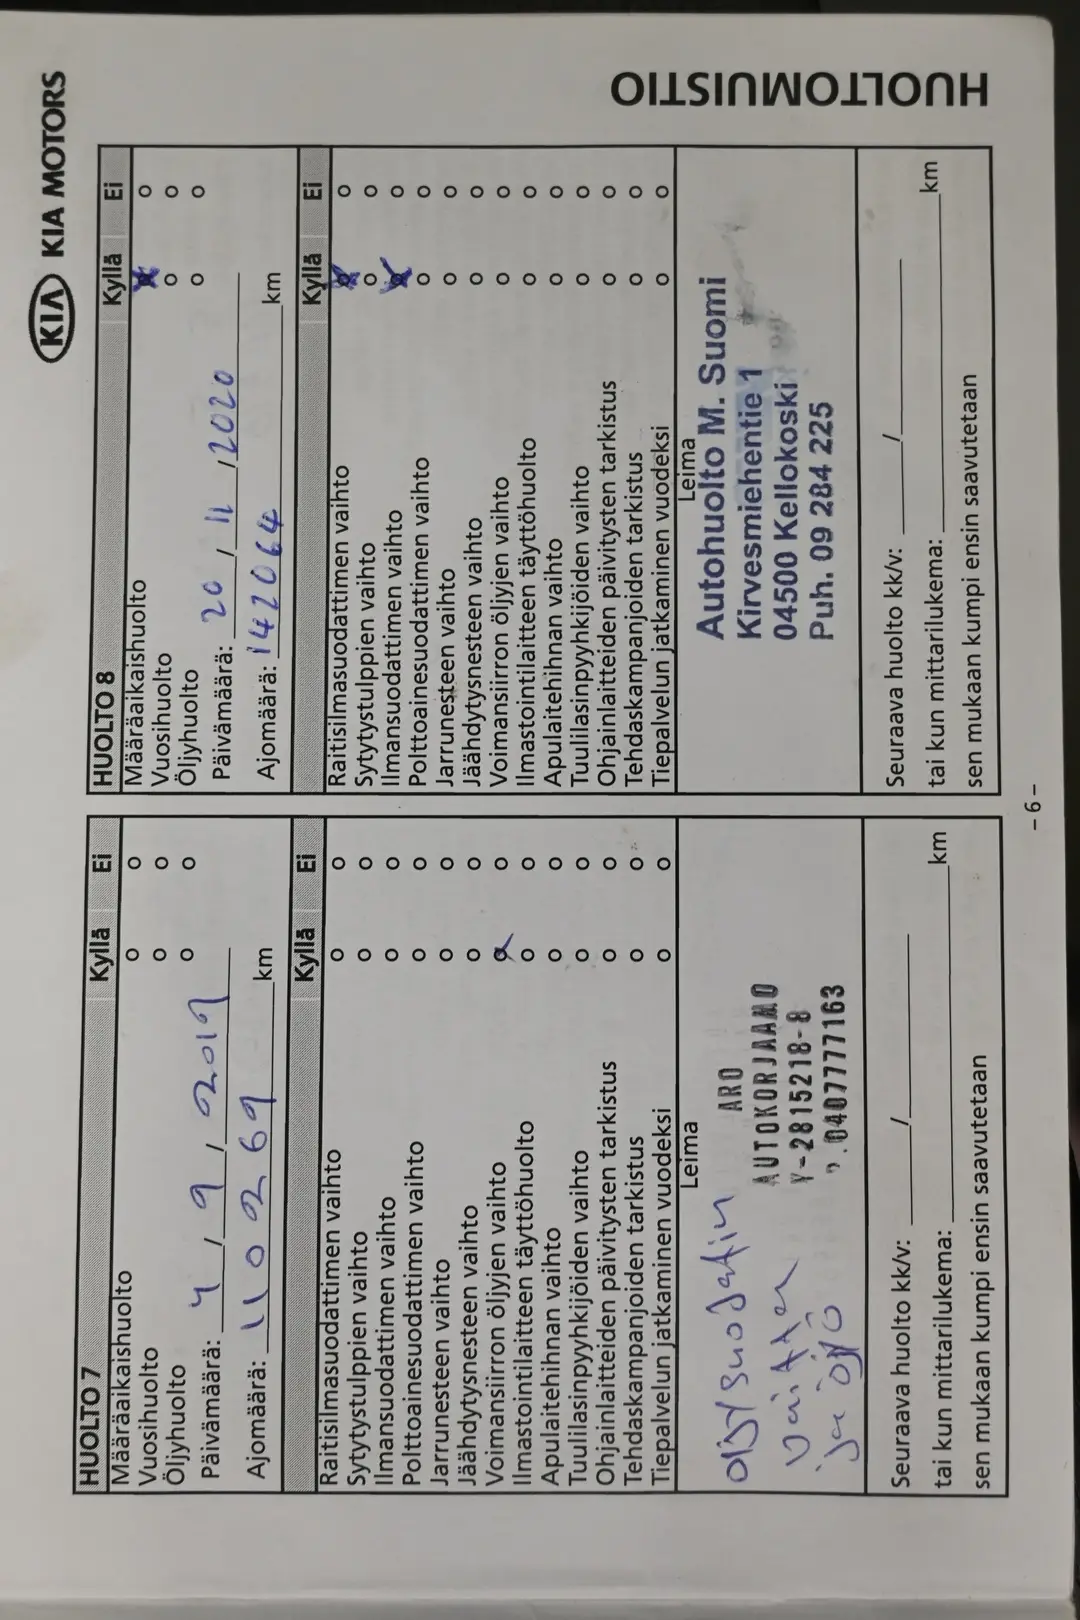 KIA KIA MOTORS
HUOLTOMUISTIO
HUOLTO 7 Kyllä Ei
Määräaikaishuolto o o
Vuosihuolto o o
Öljyhuolto o o
Päivämäärä: 4 / 9 / 2019
Ajomäärä: 110269 km
Kyllä Ei
Raitisilmasuodattimen vaihto o o
Sytytystulppien vaihto o o
Ilmansuodattimen vaihto o o
Polttoainesuodattimen vaihto o o
Jarrunesteen vaihto o o
Jäähdytysnesteen vaihto o o
Voimansiirron öljyjen vaihto o o
Ilmastointilaitteen täyttöhuolto o o
Apulaitehihnan vaihto o o
Tuulilasinpyyhkijöiden vaihto o o
Ohjainlaitteiden päivitysten tarkistus o o
Tehdaskampanjoiden tarkistus o o
Tiepalvelun jatkaminen vuodeksi o o
Leima
ARO
AUTOKORJAAMO
Y-2815218-8
.0407777163
ja öljy
Seuraava huolto kk/v: /
tai kun mittarilukema: km
sen mukaan kumpi ensin saavutetaan
HUOLTO 8 Kyllä Ei
Määräaikaishuolto x o
Vuosihuolto o o
Öljyhuolto o o
Päivämäärä: 20 / 11 / 2020
Ajomäärä: 142064 km
Kyllä Ei
Raitisilmasuodattimen vaihto x o
Sytytystulppien vaihto o o
Ilmansuodattimen vaihto x o
Polttoainesuodattimen vaihto o o
Jarrunesteen vaihto o o
Jäähdytysnesteen vaihto o o
Voimansiirron öljyjen vaihto o o
Ilmastointilaitteen täyttöhuolto o o
Apulaitehihnan vaihto o o
Tuulilasinpyyhkijöiden vaihto o o
Ohjainlaitteiden päivitysten tarkistus o o
Tehdaskampanjoiden tarkistus o o
Tiepalvelun jatkaminen vuodeksi o o
Leima
Autohuolto M. Suomi
Kirvesmiehentie 1
04500 Kellokoski
Puh. 09 284 225
Seuraava huolto kk/v: /
tai kun mittarilukema: km
sen mukaan kumpi ensin saavutetaan
- 6 -